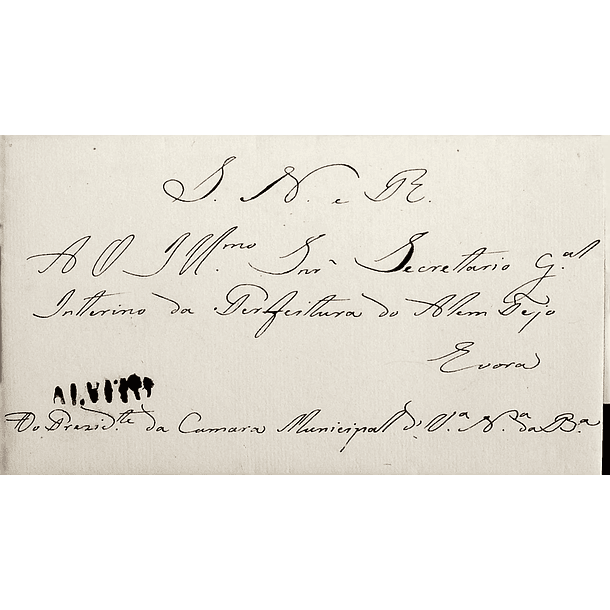 S. N. e R.
AO Ill.mo Snr̃ Secretario G.al
Interino da Perfeitura do Alem Tejo
Evora
ALVITO
Do Prezid.te da Camara Municipal d' V.a N.a da B.a